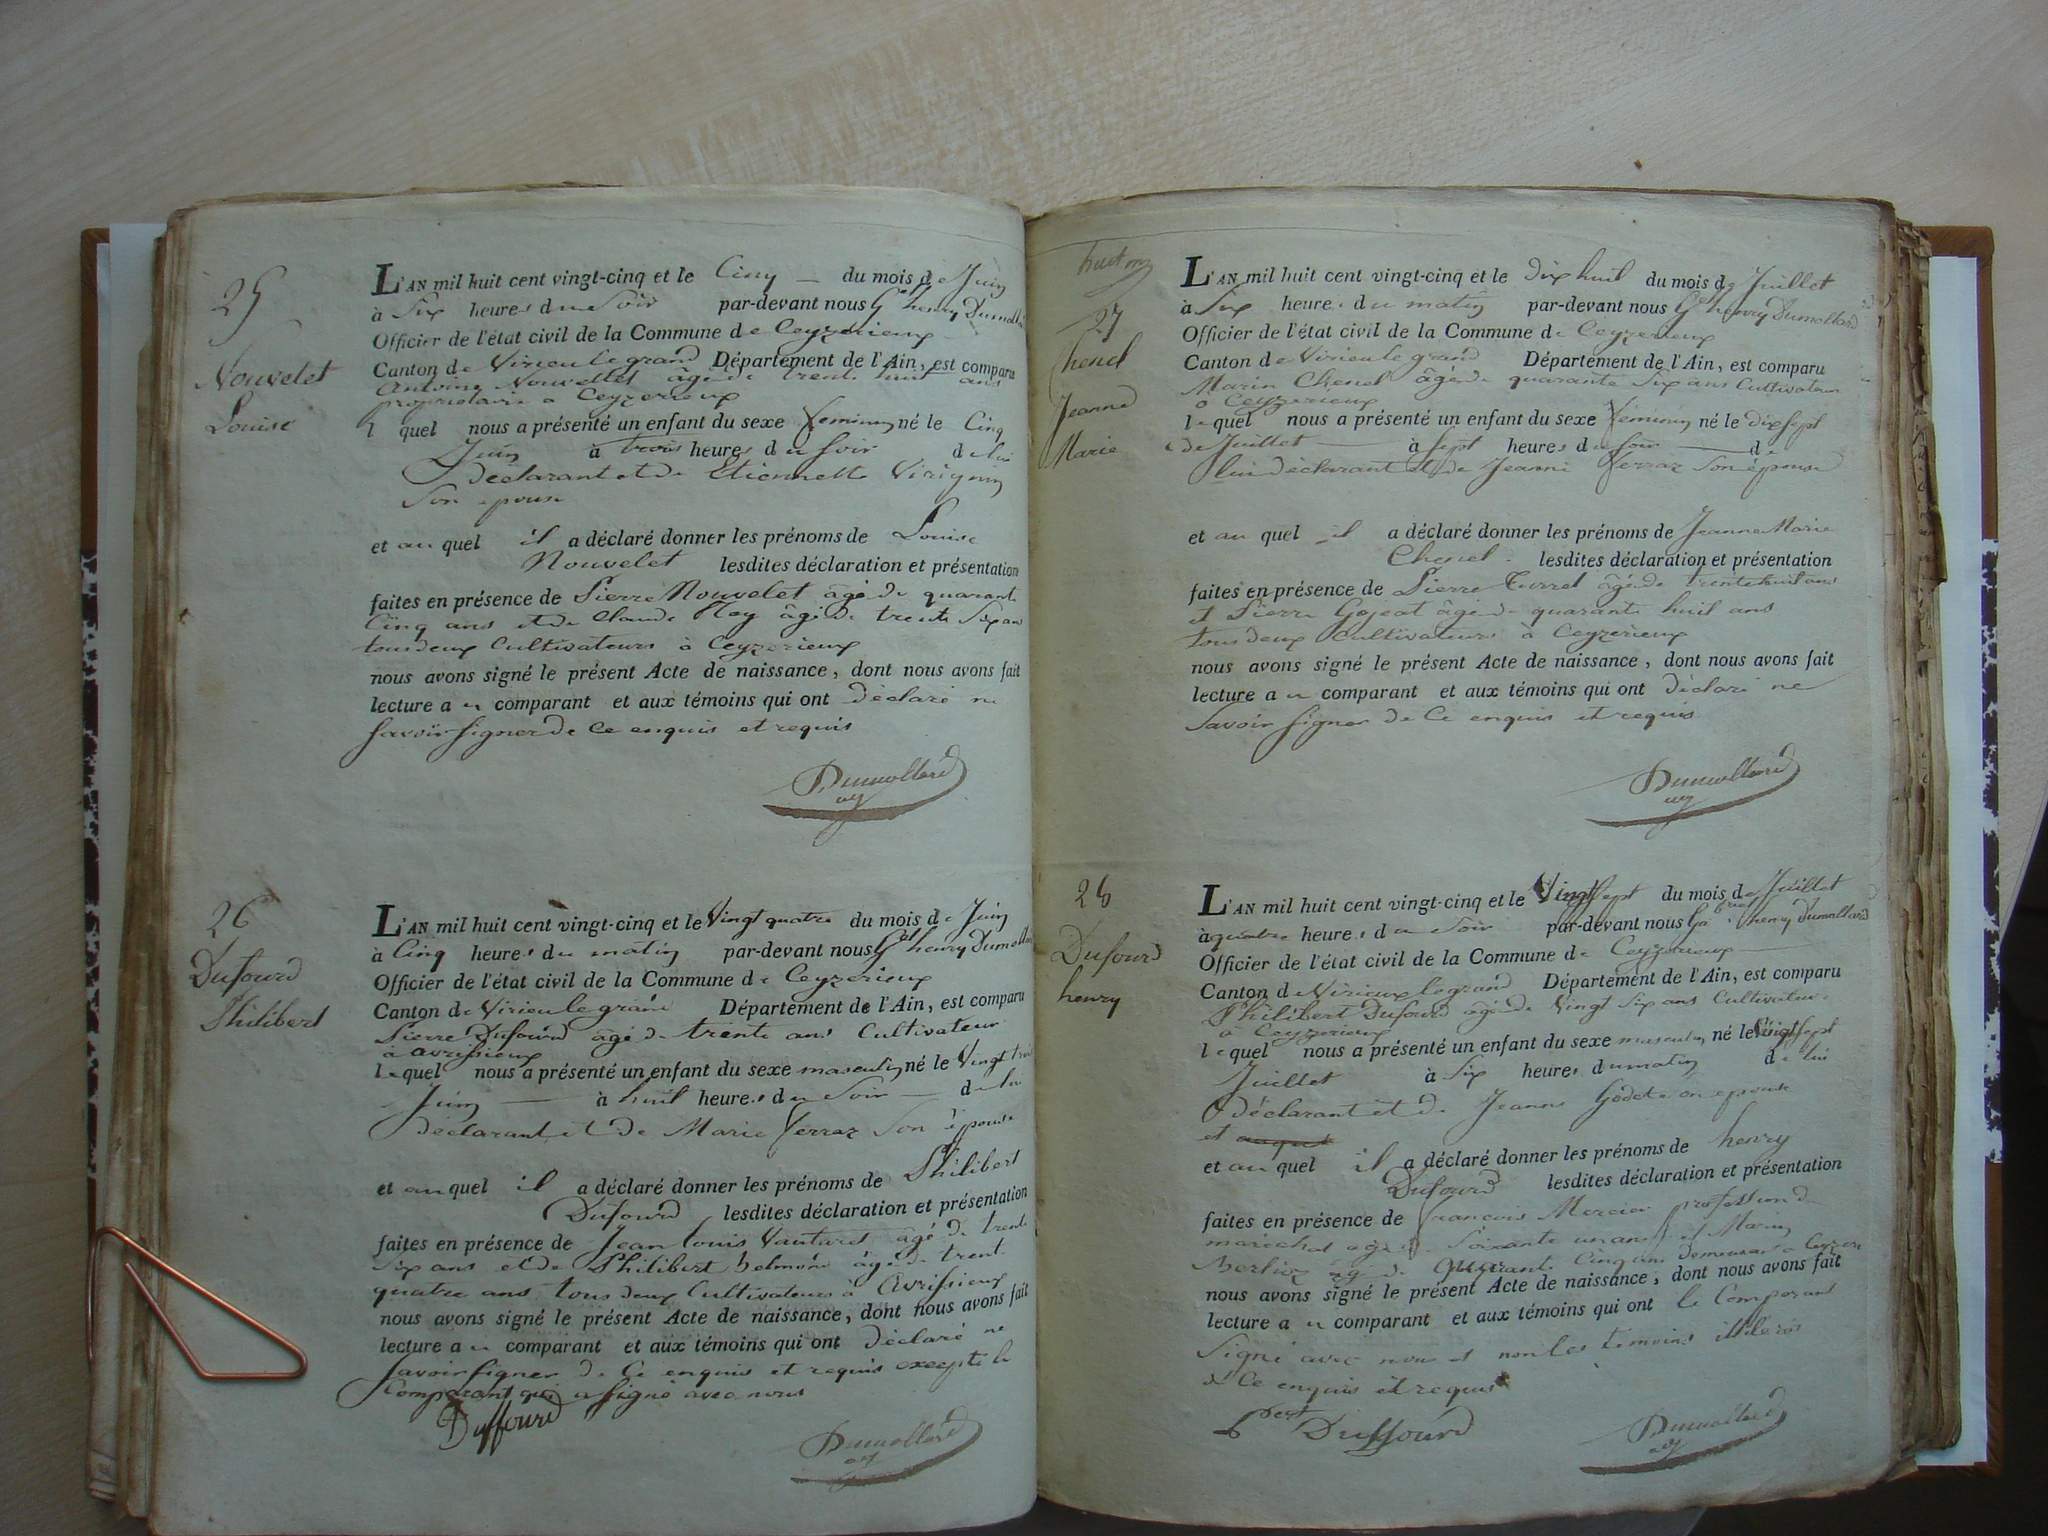 25
Nouvelet
Louise
L'AN mil huit cent vingt-cinq et le Cinq du mois de Juin
à Six heures du Soir par-devant nous Gel henry Dumollard
Officier de l'état civil de la Commune de Ceyzerieux
Canton de Virieu le grand Département de l'Ain, est comparu
Antoine Nouvellet âgé de trente huit ans
proprietaire a Ceyzerieux
l quel nous a présenté un enfant du sexe feminin né le Cinq
Juin à trois heures du soir de lui
déclarant et de Etiennette Virignin
Son epouse
et au quel il a déclaré donner les prénoms de Louise
Nouvelet lesdites déclaration et présentation
faites en présence de Pierre Nouvelet âgé de quarante
Cinq ans et de Claude Roy âgé de trente Six ans
tous deux Cultivateurs à Ceyzerieux
nous avons signé le présent Acte de naissance, dont nous avons fait
lecture au comparant et aux témoins qui ont déclaré ne
savoir signer de Ce enquis et requis
Dumollard
26
Dufourd
Philibert
L'AN mil huit cent vingt-cinq et le Vingt quatre du mois de Juin
à Cinq heures du matin par-devant nous Gel henry Dumollard
Officier de l'état civil de la Commune de Ceyzerieux
Canton de Virieu le grand Département de l'Ain, est comparu
Pierre Dufourd âgé de trente ans Cultivateur
à avrissieux
lequel nous a présenté un enfant du sexe masculin né le Vingt trois
Juin à huit heures du Soir de lui
déclarant et de Marie ferraz Son épouse
et au quel il a déclaré donner les prénoms de Philibert
Dufourd lesdites déclaration et présentation
faites en présence de Jean Louis Vauturet âgé de trente
Six ans et de Philibert âgé de trente
quatre ans tous deux Cultivateurs à Avrissieux
nous avons signé le présent Acte de naissance, dont nous avons fait
lecture au comparant et aux témoins qui ont déclaré ne
savoir signer de Ce enquis et requis excepté le
Comparant qui a signé avec nous
Duffourd
Dumollard
27
Chenel
Jeanne
Marie
L'AN mil huit cent vingt-cinq et le dix huit du mois de Juillet
à Six heures du matin par-devant nous Gel henry Dumollard
Officier de l'état civil de la Commune de Ceyzerieux
Canton de Virieu le grand Département de l'Ain, est comparu
Marin Chenel âgé de quarante Six ans Cultivateur
à Ceyzerieux
lequel nous a présenté un enfant du sexe feminin né le dix sept
de Juillet à sept heures du soir de
lui déclarant et de Jeanne ferraz Son épouse
et au quel il a déclaré donner les prénoms de Jeanne Marie
Chenel lesdites déclaration et présentation
faites en présence de Pierre Turrel âgé de trente huit ans
et Pierre Gojeat âgé de quarante huit ans
tous deux Cultivateurs à Ceyzerieux
nous avons signé le présent Acte de naissance, dont nous avons fait
lecture au comparant et aux témoins qui ont déclaré ne
savoir signer de Ce enquis et requis
Dumollard
28
Dufourd
henry
L'AN mil huit cent vingt-cinq et le Vingt sept du mois de Juillet
à quatre heures du Soir par-devant nous Gabriel henry Dumollard
Officier de l'état civil de la Commune de Ceyzerieux
Canton de Virieux le grand Département de l'Ain, est comparu
Philibert Dufourd âgé de Vingt Six ans Cultivateur
à Ceyzerieux
lequel nous a présenté un enfant du sexe masculin né le Vingt sept
Juillet à Six heures du matin de lui
déclarant et de Jeanne Godet son epouse
et auquel
et au quel il a déclaré donner les prénoms de henry
Dufourd lesdites déclaration et présentation
faites en présence de françois Mercier profession de
marechal agé de Soixante un ans et Marin
Berlioz agé de quarante Cinq ans demeurant a Ceyzerieux
nous avons signé le présent Acte de naissance, dont nous avons fait
lecture au comparant et aux témoins qui ont le Comparant
Signé avec nous et non les temoins illiterés
de Ce enquis et requis
Duffourd
Dumollard